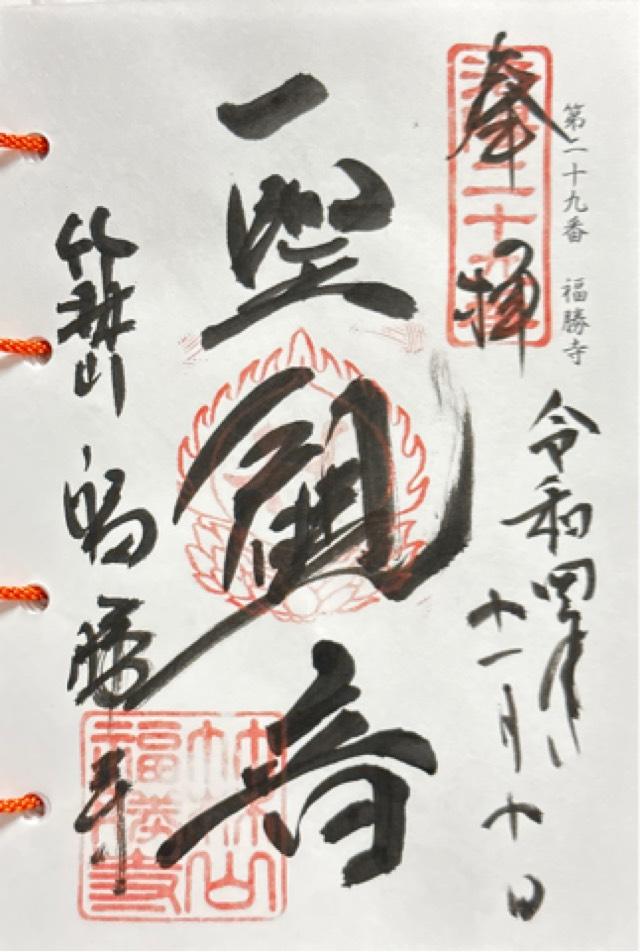 第二十九番 福勝寺
奉拝
令和四年
十一月十日
一聖観音
竹林山 福勝寺
竹林山
福勝寺